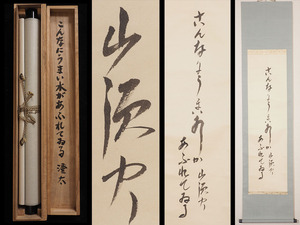 こんなにうまい水があふれてゐる
澄太
山頭火
こんなにうまい水が
あふれてゐる
山頭火
こんなにうまい水が
あふれてゐる
山頭火